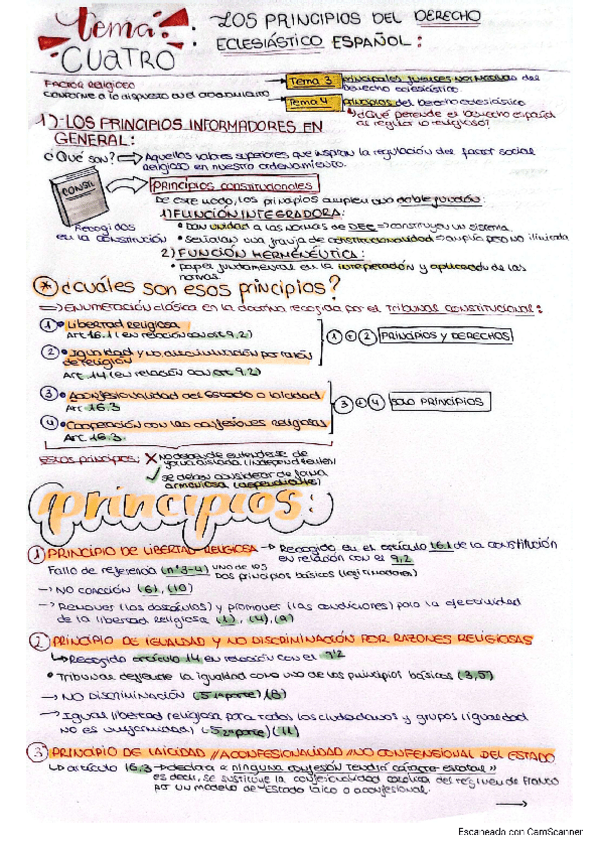 Tema CUATRO:
LOS PRINCIPIOS DEL DERECHO
ECLESIÁSTICO ESPAÑOL:
FACTOR RELIGIOSO
conforme a lo dispuesto en el
Tema 3 principales fuentes normativas del
derecho eclesiástico
Tema 4 principios del derecho eclesiástico
¿Qué pretende el español
al regular lo religioso?
1)-LOS PRINCIPIOS INFORMADORES EN
GENERAL:
¿Qué son? Aquellos valores superiores que inspiran la regulación del factor social
religioso en nuestro ordenamiento.
CONSTI.
Principios constitucionales
De este modo, los principios cumplen una doble función:
1) FUNCIÓN INTEGRADORA:
Recogidos
en la constitución
• Dan unidad a las normas de DEE => constituyen un sistema
• Señalan una franja de constitucionalidad => amplia pero no ilimitada
2) FUNCIÓN HERMENÉUTICA:
• papel fundamental en la interpretación y aplicación de las
normas.
* ¿cuáles son esos principios?
=> Enumeración clásica en la doctrina recogida por el Tribunal Constitucional:
1 • Libertad Religiosa
Art 16.1 (en relación con art 9.2)
2 • Igualdad y no discriminación por razón
de religión
Art. 14 (en relación con art 9.2)
1 + 2 PRINCIPIOS Y DERECHOS
3 • Aconfesionalidad del Estado o laicidad
Art 16.3
4 • Cooperación con las confesiones religiosas
Art. 16.3.
3 + 4 SOLO PRINCIPIOS
Estos principios: X No deben de entenderse de
forma aislada (independientes)
✓ se deben considerar de forma
armoniosa (dependientes)
principios:
1 PRINCIPIO DE LIBERTAD RELIGIOSA -> Recogido en el artículo 16.1 de la constitución
en relación con el 9.2
Fallo de referencia (nº3-4) uno de los
Dos principios básicos (legitimadores)
-> NO COACCIÓN (6), (10)
-> Remover (los obstáculos) y promover (las condiciones) para la efectividad
de la libertad religiosa (1), (4), (9)
2 PRINCIPIO DE IGUALDAD Y NO DISCRIMINACIÓN POR RAZONES RELIGIOSAS
Recogido artículo 14 en relación con el 9.2
• Tribunal defiende la igualdad como uno de los principios básicos (3,5)
-> NO DISCRIMINACIÓN (5 1ª parte) (8)
-> Igual libertad religiosa para todos los ciudadanos y grupos (igualdad
no es uniformidad) (5 2ª parte) (11)
3 PRINCIPIO DE LAICIDAD // ACONFESIONALIDAD // NO CONFESIONAL DEL ESTADO
artículo 16.3 -> declara a ninguna confesión tendrá carácter estatal"
es decir, se sustituye la confesionalidad católica del régimen de Franco
por un modelo de Estado laico o aconfesional.
Escaneado con CamScanner